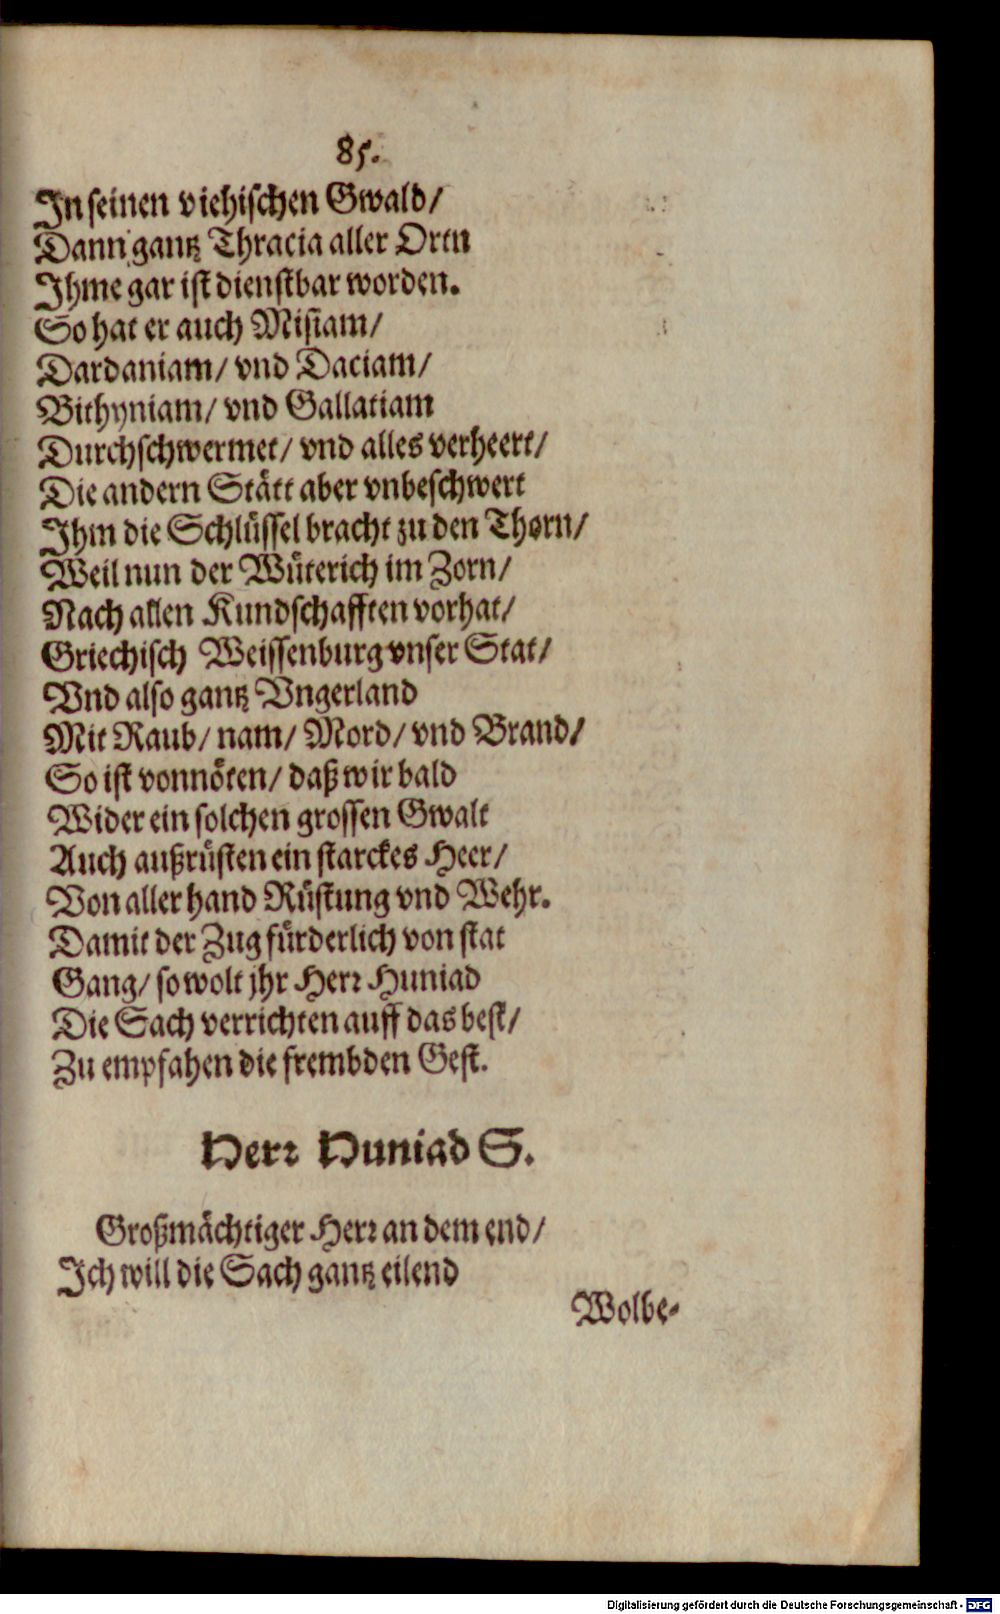 85.
In seinen viehischen Gwald/
Dann gantz Thracia aller Ortn
Ihme gar ist dienstbar worden.
So hat er auch Misiam/
Dardaniam/ vnd Daciam/
Bithyniam/ vnd Gallatiam
Durchschwermet/ vnd alles verheert/
Die andern Stätt aber vnbeschwert
Ihm die Schlüssel bracht zu den Thorn/
Weil nun der Wüterich im Zorn/
Nach allen Kundschafften vorhat/
Griechisch Weissenburg vnser Stat/
Vnd also gantz Vngerland
Mit Raub/ nam/ Mord/ vnd Brand/
So ist vonnöten/ daß wir bald
Wider ein solchen grossen Gwalt
Auch außrüsten ein starckes Heer/
Von aller hand Rüstung vnd Wehr.
Damit der Zug fürderlich von stat
Gang/ so wolt jhr Herr Huniad
Die Sach verrichten auff das best/
Zu empfahen die frembden Gest.
Herr Huniad S.
Großmächtiger Herr an dem end/
Ich will die Sach gantz eilend
Wolbe-
Digitalisierung gefördert durch die Deutsche Forschungsgemeinschaft - DFG